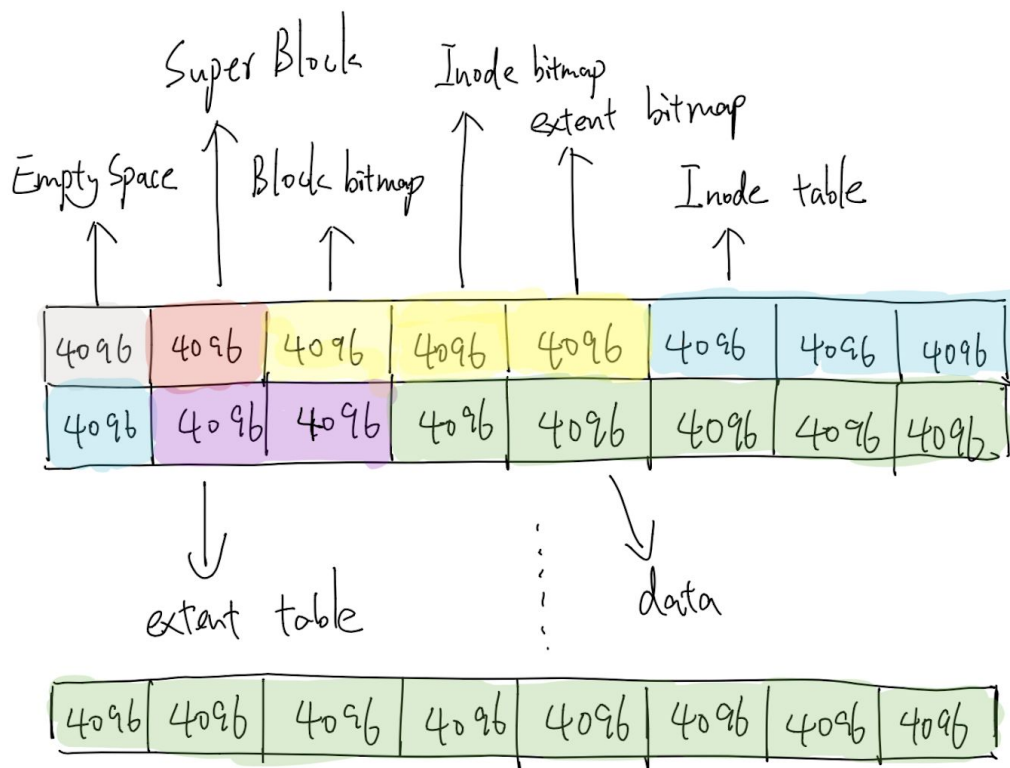 Super Block
Inode bitmap
extent bitmap
Empty Space
Block bitmap
Inode table
4096 4096 4096 4096 4096 4096 4096 4096
4096 4096 4096 4096 4096 4096 4096 4096
extent table
data
4096 4096 4096 4096 4096 4096 4096 4096